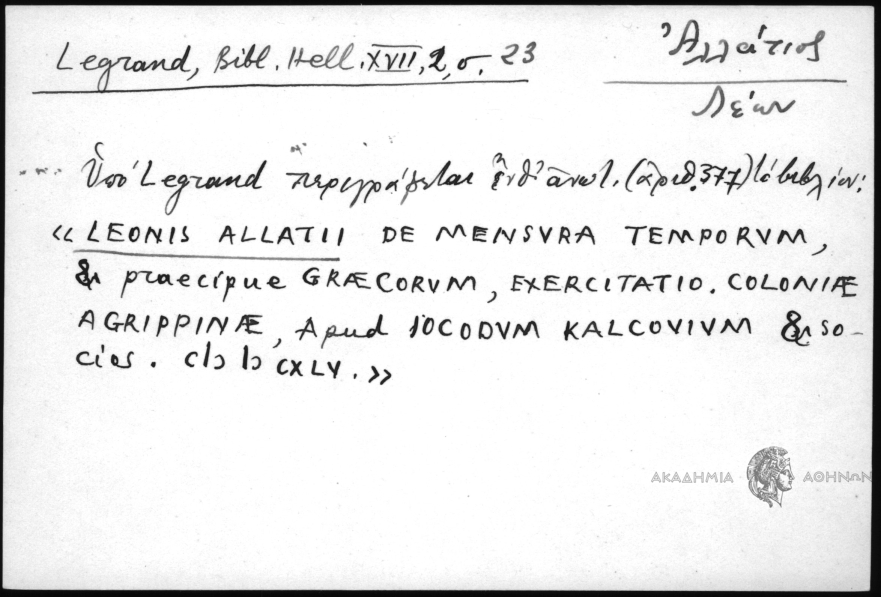 Legrand, Bibl. Hell. XVII, 2, σ. 23
Ἀλλάτιος
Λέων
Ὑπό Legrand περιγράφεται ἔνθ' ἀνωτ. (ἀριθ. 377) τό βιβλίον:
« LEONIS ALLATII DE MENSVRA TEMPORVM,
& praecipue GRÆCORVM, EXERCITATIO. COLONIÆ
AGRIPPINÆ, Apud IOCODVM KALCOVIVM & SO-
cios. cIɔ Iɔ CXLV. »
ΑΚΑΔΗΜΙΑ ΑΘΗΝΩΝ